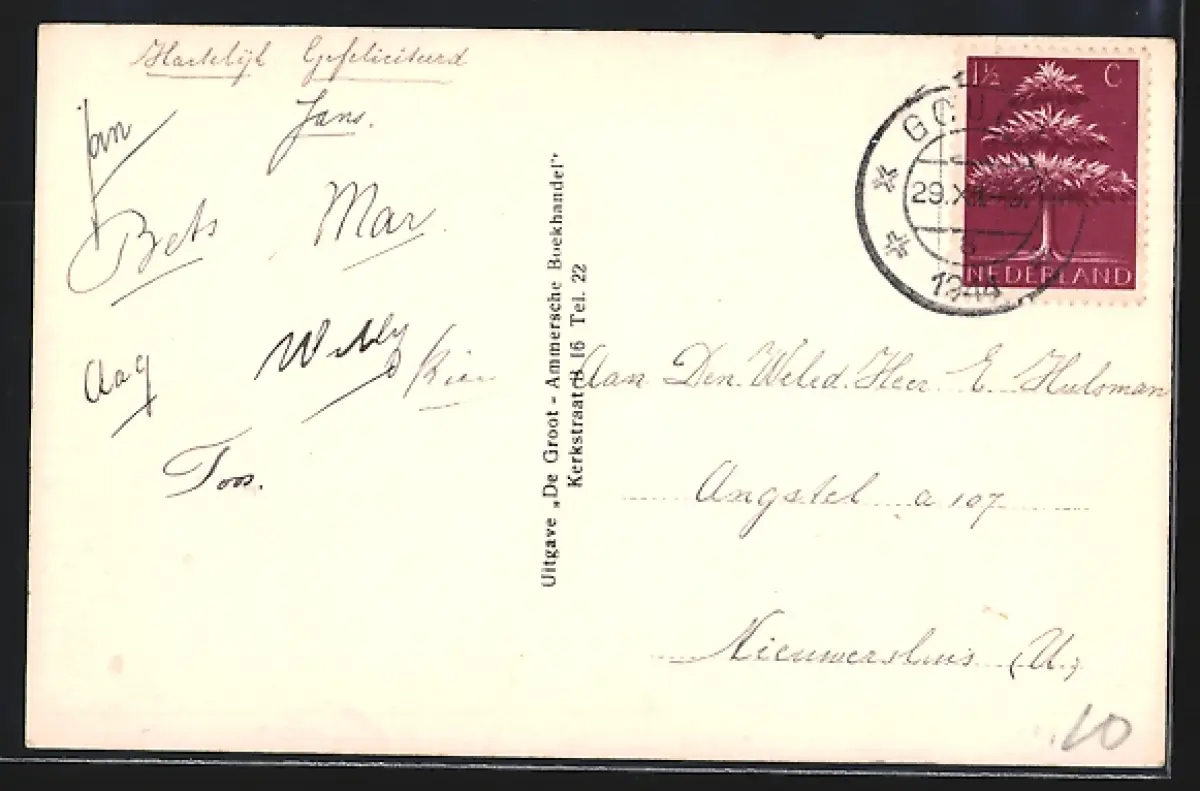 Hartelijk Gefeliciteerd
Jans.
Jan
Bets
Mar.
Willy
Aag
Rien
Toos.
Uitgave „De Groot - Ammersche Boekhandel"
Kerkstraat B 16 Tel. 22
1½ C
NEDERLAND
29.XII
12-14
Aan Den Weled. Heer E Hulsman
Angstel a 107
Nieuwersluis (U.)
10